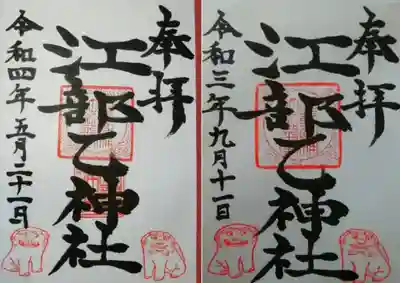 奉拝
江部乙神社
令和四年五月二十一日
奉拝
江部乙神社
令和三年九月十一日